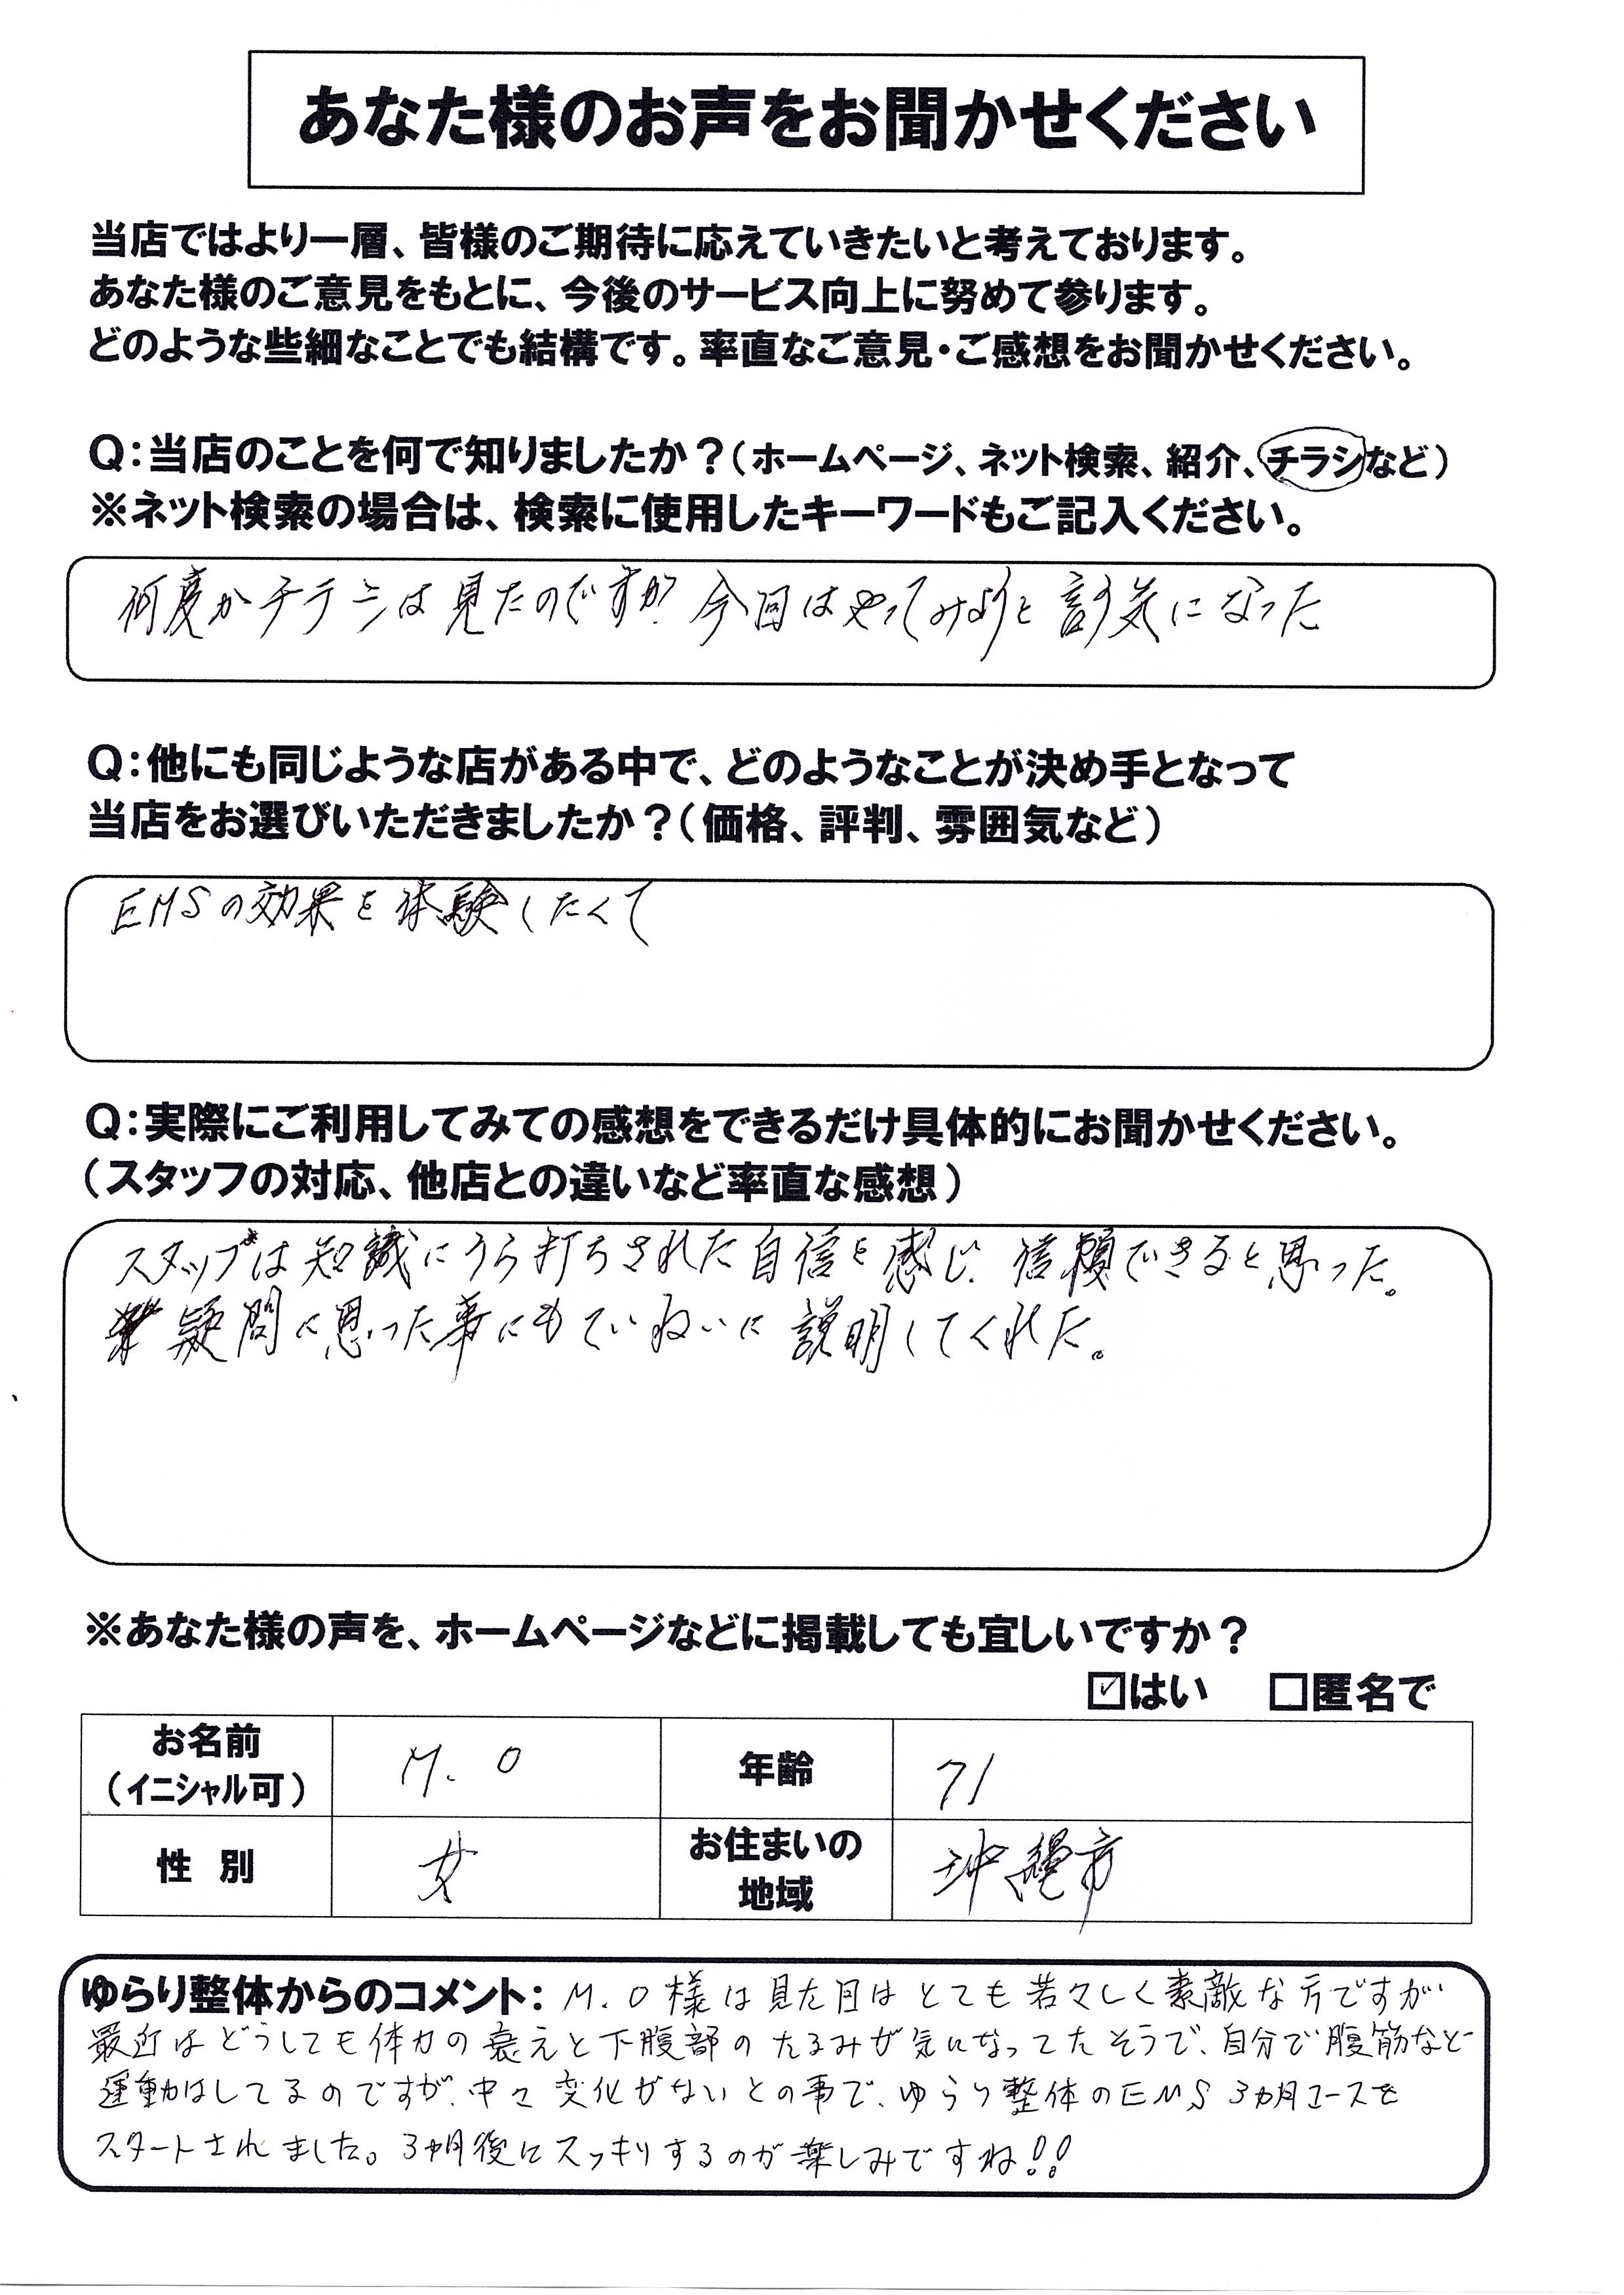 あなた様のお声をお聞かせください
当店ではより一層、皆様のご期待に応えていきたいと考えております。
あなた様のご意見をもとに、今後のサービス向上に努めて参ります。
どのような些細なことでも結構です。率直なご意見・ご感想をお聞かせください。
Q：当店のことを何で知りましたか？（ホームページ、ネット検索、紹介、チラシなど）
※ネット検索の場合は、検索に使用したキーワードもご記入ください。
何度かチラシは見たのですが今回はやってみようと言う気になった
Q：他にも同じような店がある中で、どのようなことが決め手となって
当店をお選びいただきましたか？（価格、評判、雰囲気など）
EMSの効果を体験したくて
Q：実際にご利用してみての感想をできるだけ具体的にお聞かせください。
（スタッフの対応、他店との違いなど率直な感想）
スタッフは知識にうら打ちされた自信を感じ、信頼できると思った。
疑問に思った事にもていねいに説明してくれた。
※あなた様の声を、ホームページなどに掲載しても宜しいですか？
☑はい　□匿名で
お名前 M.O 年齢 71
（イニシャル可）
性別 女 お住まいの 沖縄市
地域
ゆらり整体からのコメント：M.O様は見た目はとても若々しく素敵な方ですが
最近はどうしても体力の衰えと下腹部のたるみが気になってたそうで、自分で腹筋など
運動はしてるのですが、中々変化がないとの事で、ゆらり整体のEMS3カ月コースを
スタートされました。3カ月後にスッキリするのが楽しみですね!!